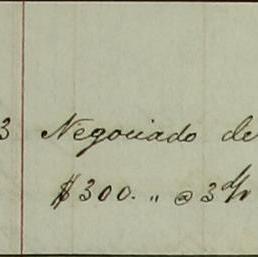 3 Negociado de
$300. " @ 3 d/v